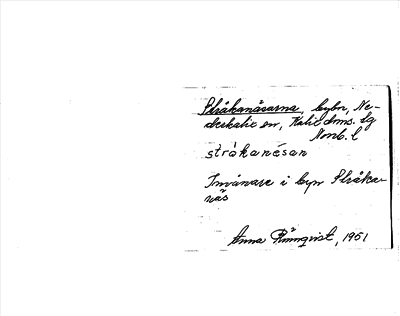 Stråkanäsarna, bybor, Ne-
derkalix sn, Kalix dms. lg
Norrb. l
stråkanäsan
Invånare i byn Stråka-
näs
Anna 1951